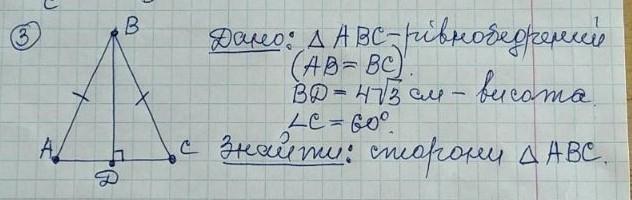 ③ Дано: △ ABC - рівнобедрений
(AB = BC).
BD = 4√3 см - висота.
∠C = 60°.
Знайти: сторони △ ABC.
B
A
D
C